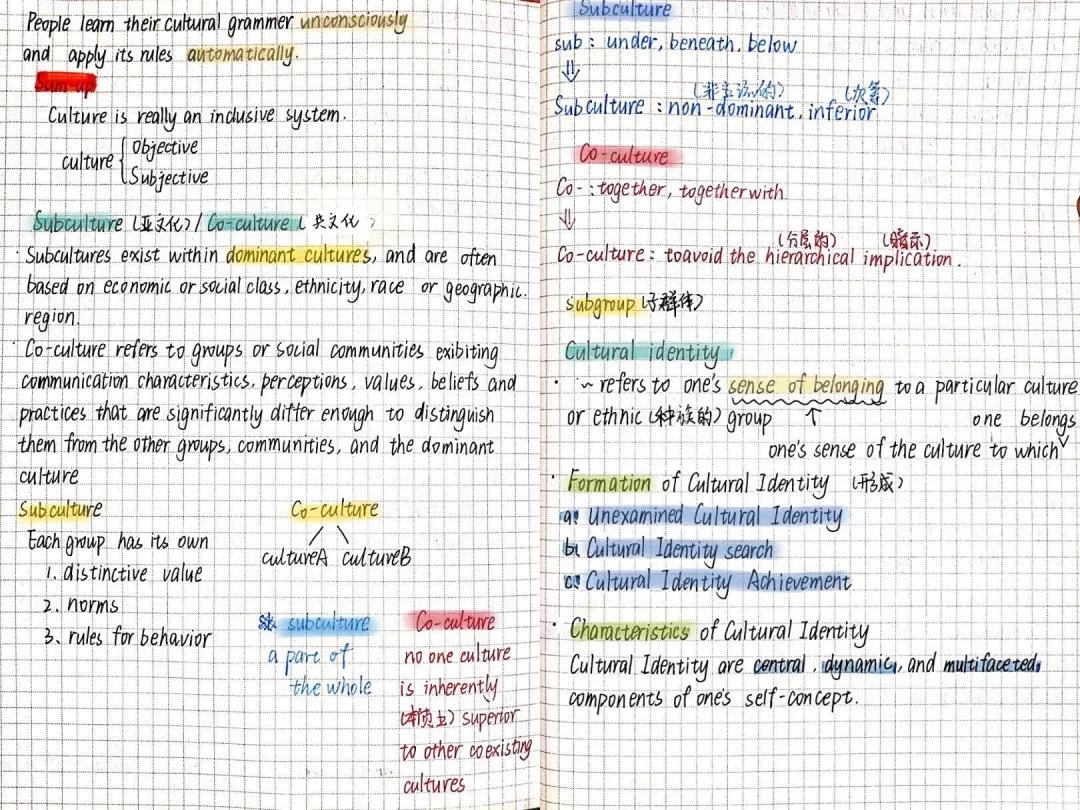 People learn their cultural grammer unconsciously
and apply its rules automatically.
Sum-up
Culture is really an inclusive system.
culture { Objective
Subjective
Subculture (亚文化) / Co-culture (共文化)
· Subcultures exist within dominant cultures, and are often
based on economic or social class, ethnicity, race or geographic
region.
· Co-culture refers to groups or social communities exibiting
communication characteristics, perceptions, values, beliefs and
practices that are significantly differ enough to distinguish
them from the other groups, communities, and the dominant
culture
Subculture
Each group has its own
1. distinctive value
2. norms
3. rules for behavior
Co-culture
cultureA cultureB
subculture
a part of
the whole
Co-culture
no one culture
is inherently
(本质上) superior
to other coexisting
cultures
Subculture
sub : under, beneath, below
⇓
(非主流的) (次等)
Subculture : non-dominant, inferior
Co-culture
Co- : together, together with
⇓
(分层的) (暗示)
Co-culture : to avoid the hierarchical implication.
subgroup (子群体)
Cultural identity
· ~ refers to one's sense of belonging to a particular culture
or ethnic (种族的) group ↑ one belongs
one's sense of the culture to which
· Formation of Cultural Identity (形成)
a: Unexamined Cultural Identity
b: Cultural Identity search
c: Cultural Identity Achievement
· Characteristics of Cultural Identity
Cultural Identity are central, dynamic, and multifaceted
components of one's self-concept.